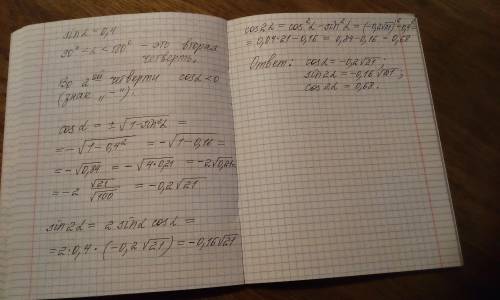 sinα = 0,4
90° < α < 180° – это вторая
четверть.
Во 2ой четверти cosα < 0
(знак „–“).
cosα = ±√(1-sin²α) =
= -√(1-0,4²) = -√(1-0,16) =
= -√0,84 = -√(4·0,21) = -2√0,21 =
= -2 √21/√100 = -0,2√21
sin2α = 2 sinα cosα =
= 2·0,4·(-0,2√21) = -0,16√21
cos2α = cos²α - sin²α = (-0,2√21)² - 0,4² =
= 0,04·21 - 0,16 = 0,84 - 0,16 = 0,68
Ответ: cosα = -0,2√21;
sin2α = -0,16√21;
cos2α = 0,68.